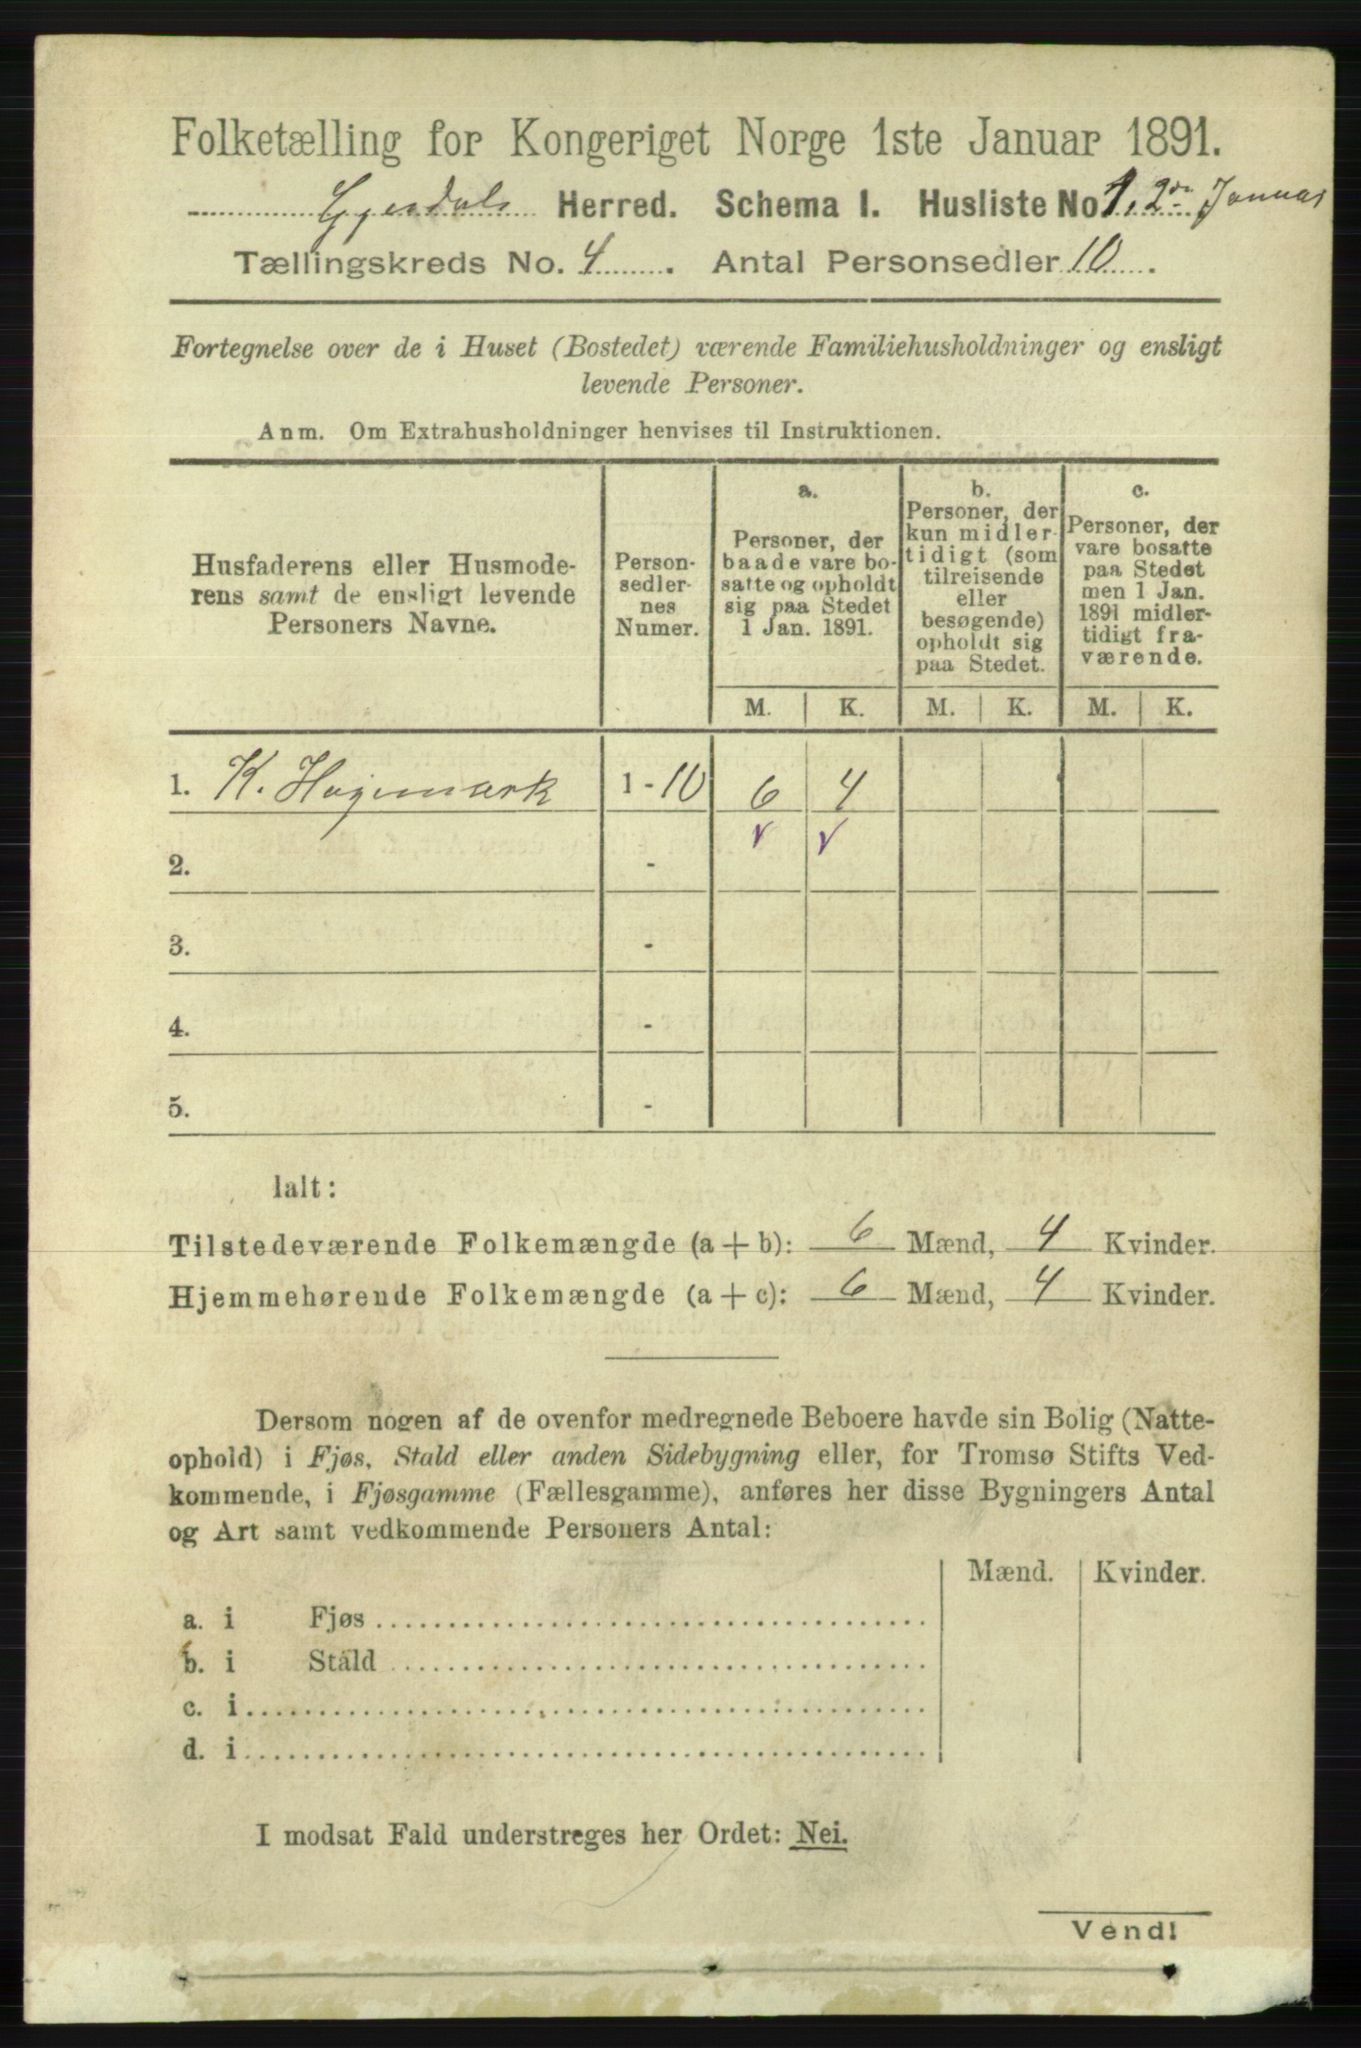 Folketælling for Kongeriget Norge 1ste Januar 1891.
Gjesdals Herred. Schema I. Husliste No 1. 2den Januar
Tællingskreds No. 4. Antal Personsedler 10.
Fortegnelse over de i Huset (Bostedet) værende Familiehusholdninger og ensligt
levende Personer.
Anm. Om Extrahusholdninger henvises til Instruktionen.
Husfaderens eller Husmode-
rens samt de ensligt levende
Personers Navne.
Person-
sedler-
nes
Numer.
a.
Personer, der
baade vare bo-
satte og opholdt
sig paa Stedet
1 Jan. 1891.
b.
Personer, der
kun midler-
tidigt (som
tilreisende
eller
besøgende)
opholdt sig
paa Stedet.
c.
Personer, der
vare bosatte
paa Stedet
men 1 Jan.
1891 midler-
tidigt fra-
værende.
M. K. M. K. M. K.
1. K. Hagemark 1 - 10 6 4
2. -
3. -
4. -
5. -
Ialt:
Tilstedeværende Folkemængde (a + b): 6 Mænd, 4 Kvinder.
Hjemmehørende Folkemængde (a + c): 6 Mænd, 4 Kvinder.
Dersom nogen af de ovenfor medregnede Beboere havde sin Bolig (Natte-
ophold) i Fjøs, Stald eller anden Sidebygning eller, for Tromsø Stifts Ved-
kommende, i Fjøsgamme (Fællesgamme), anføres her disse Bygningers Antal
og Art samt vedkommende Personers Antal:
Mænd. Kvinder.
a. i Fjøs
b. i Stald
c. i
d. i
I modsat Fald understreges her Ordet: Nei.
Vend!